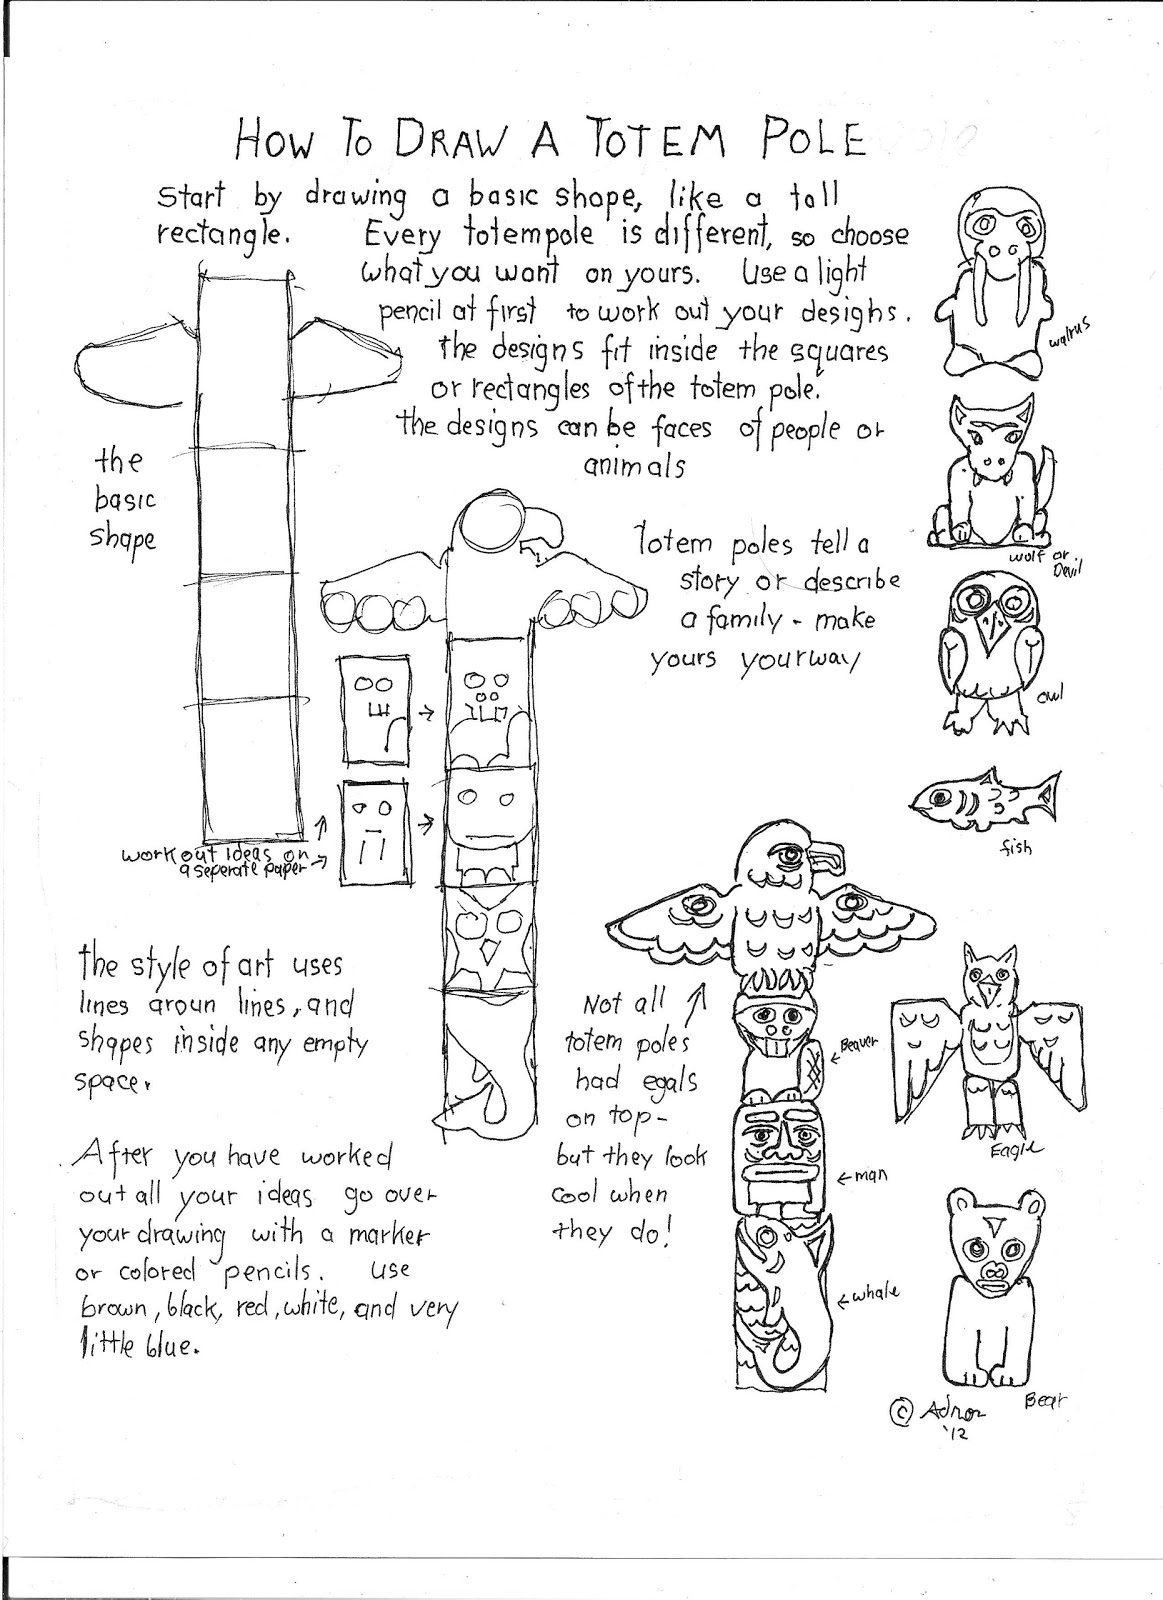 HOW TO DRAW A TOTEM POLE
Start by drawing a basic shape, like a tall
rectangle. Every totempole is different, so choose
what you want on yours. Use a light
pencil at first to work out your designs.
the designs fit inside the squares
or rectangles of the totem pole.
the designs can be faces of people or
animals
the
basic
shape
walrus
Totem poles tell a
story or describe
a family - make
yours your way
wolf or
Devil
owl
work out ideas on
a seperate paper
fish
the style of art uses
lines aroun lines, and
shapes inside any empty
space.
Not all
totem poles
had egals
on top-
but they look
cool when
they do!
Beaver
man
whale
Eagle
After you have worked
out all your ideas go over
your drawing with a marker
or colored pencils. use
brown, black, red, white, and very
little blue.
Bear
©
'12